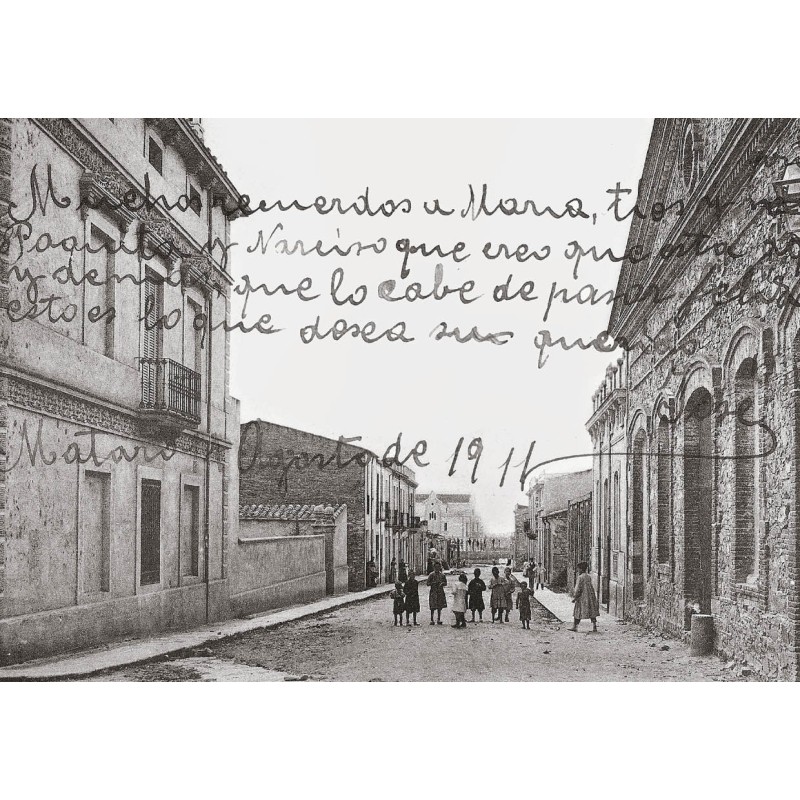 Muchos recuerdos a Maria, tios y
Paquita y Narciso que creo que esta
y demas, que lo cabe de pasar feliz
esto es lo que desea sus querido
Jose
Mataro Agosto de 1911